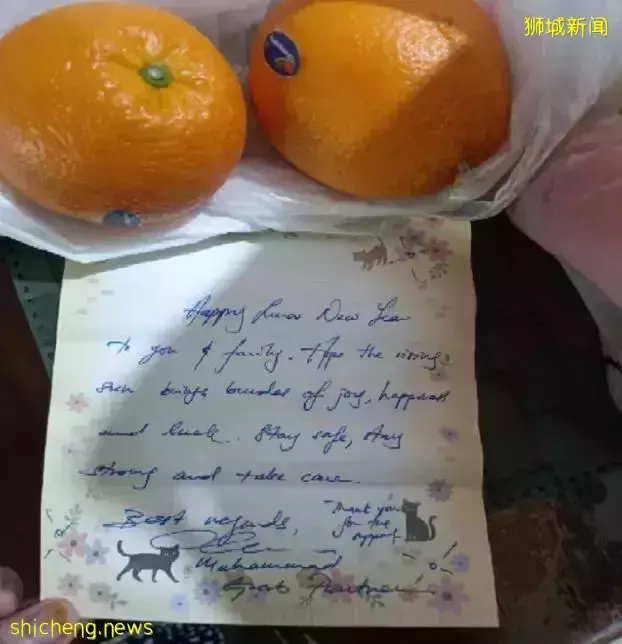 狮城新闻
Happy Lunar New Year
to you & family. Hope the rising
sun brings bundles of joy, happiness
and luck. Stay safe, stay
strong and take care.
Best regards,
Thank you
for the
support
Muhammad
Grab Partner
shicheng.news